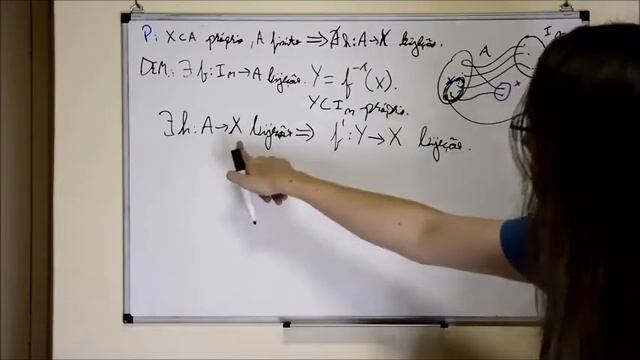 P: X⊂A próprio, A finito ⟹ ∄ h: A→X bijeção.
DEM: ∃ f: Iₘ→A bijeção. Y = f⁻¹(X).
Y⊂Iₘ próprio.
∃ h: A→X bijeção ⟹ f': Y→X bijeção.
A
X